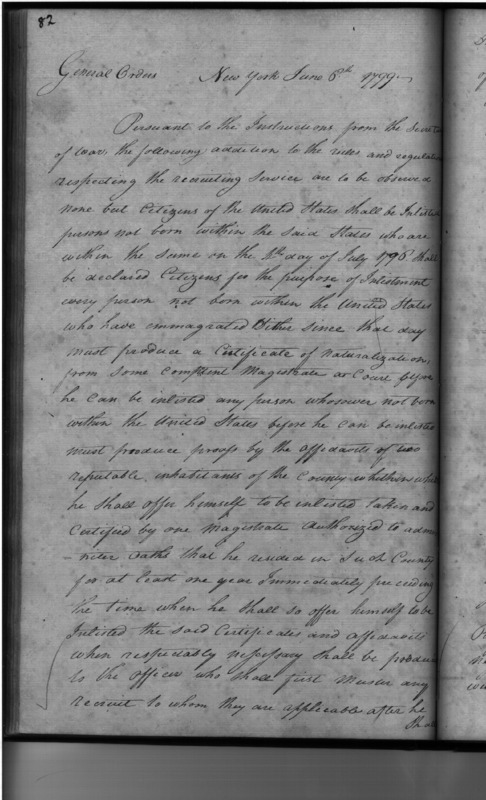 82
General Orders New York June 6th 1799
Pursuant to the Instructions from the Secreta
of war, the following addition to the rules and regulations
respecting the recruiting Service are to be observed
none but Citizens of the United States shall be Inlisted
persons not born within the said States who are
within the same on the day of July 1798 shall
be declared Citizens for the purpose of Inlistment
every person not born within the United States
who have emmagrated hither since that day
must produce a Certificate of naturalization,
from some competent Magistrate or Court before
he can be inlisted any person whosover not born
within the United States before he can be inlisted
must produce proofs by the affidavits of two
reputable inhabitants of the County within which
he shall offer himself to be inlisted taken and
Certified by one Magistrate Authorized to admi
-nister oaths that he resided in Such County
for at least one year Immediately preceeding
the time when he shall so offer himself to be
Inlisted the said Certificates and affidavits
when respectably nessessary shall be produced
to the officer who shall first Muster any
recruit to whom they are applicable after he
Shall